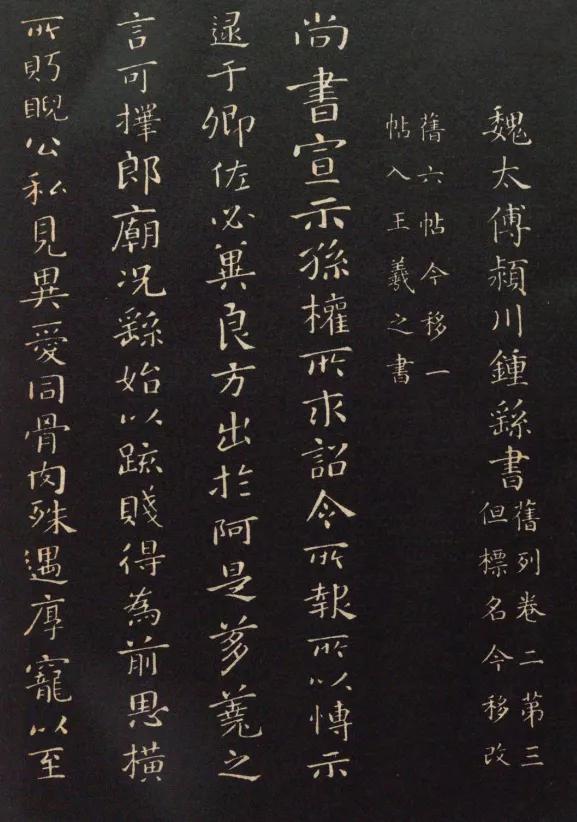 魏太傅潁川鍾繇書
舊列卷二第三
但標名今移改
舊六帖今移一
帖入王羲之書
尚書宣示孫權所求詔令所報所以愽示
逮于卿佐必冀良方出於阿是芻蕘之
言可擇郎廟况繇始以疏賤得為前恩橫
所眄睨公私見異愛同骨肉殊遇厚寵以至